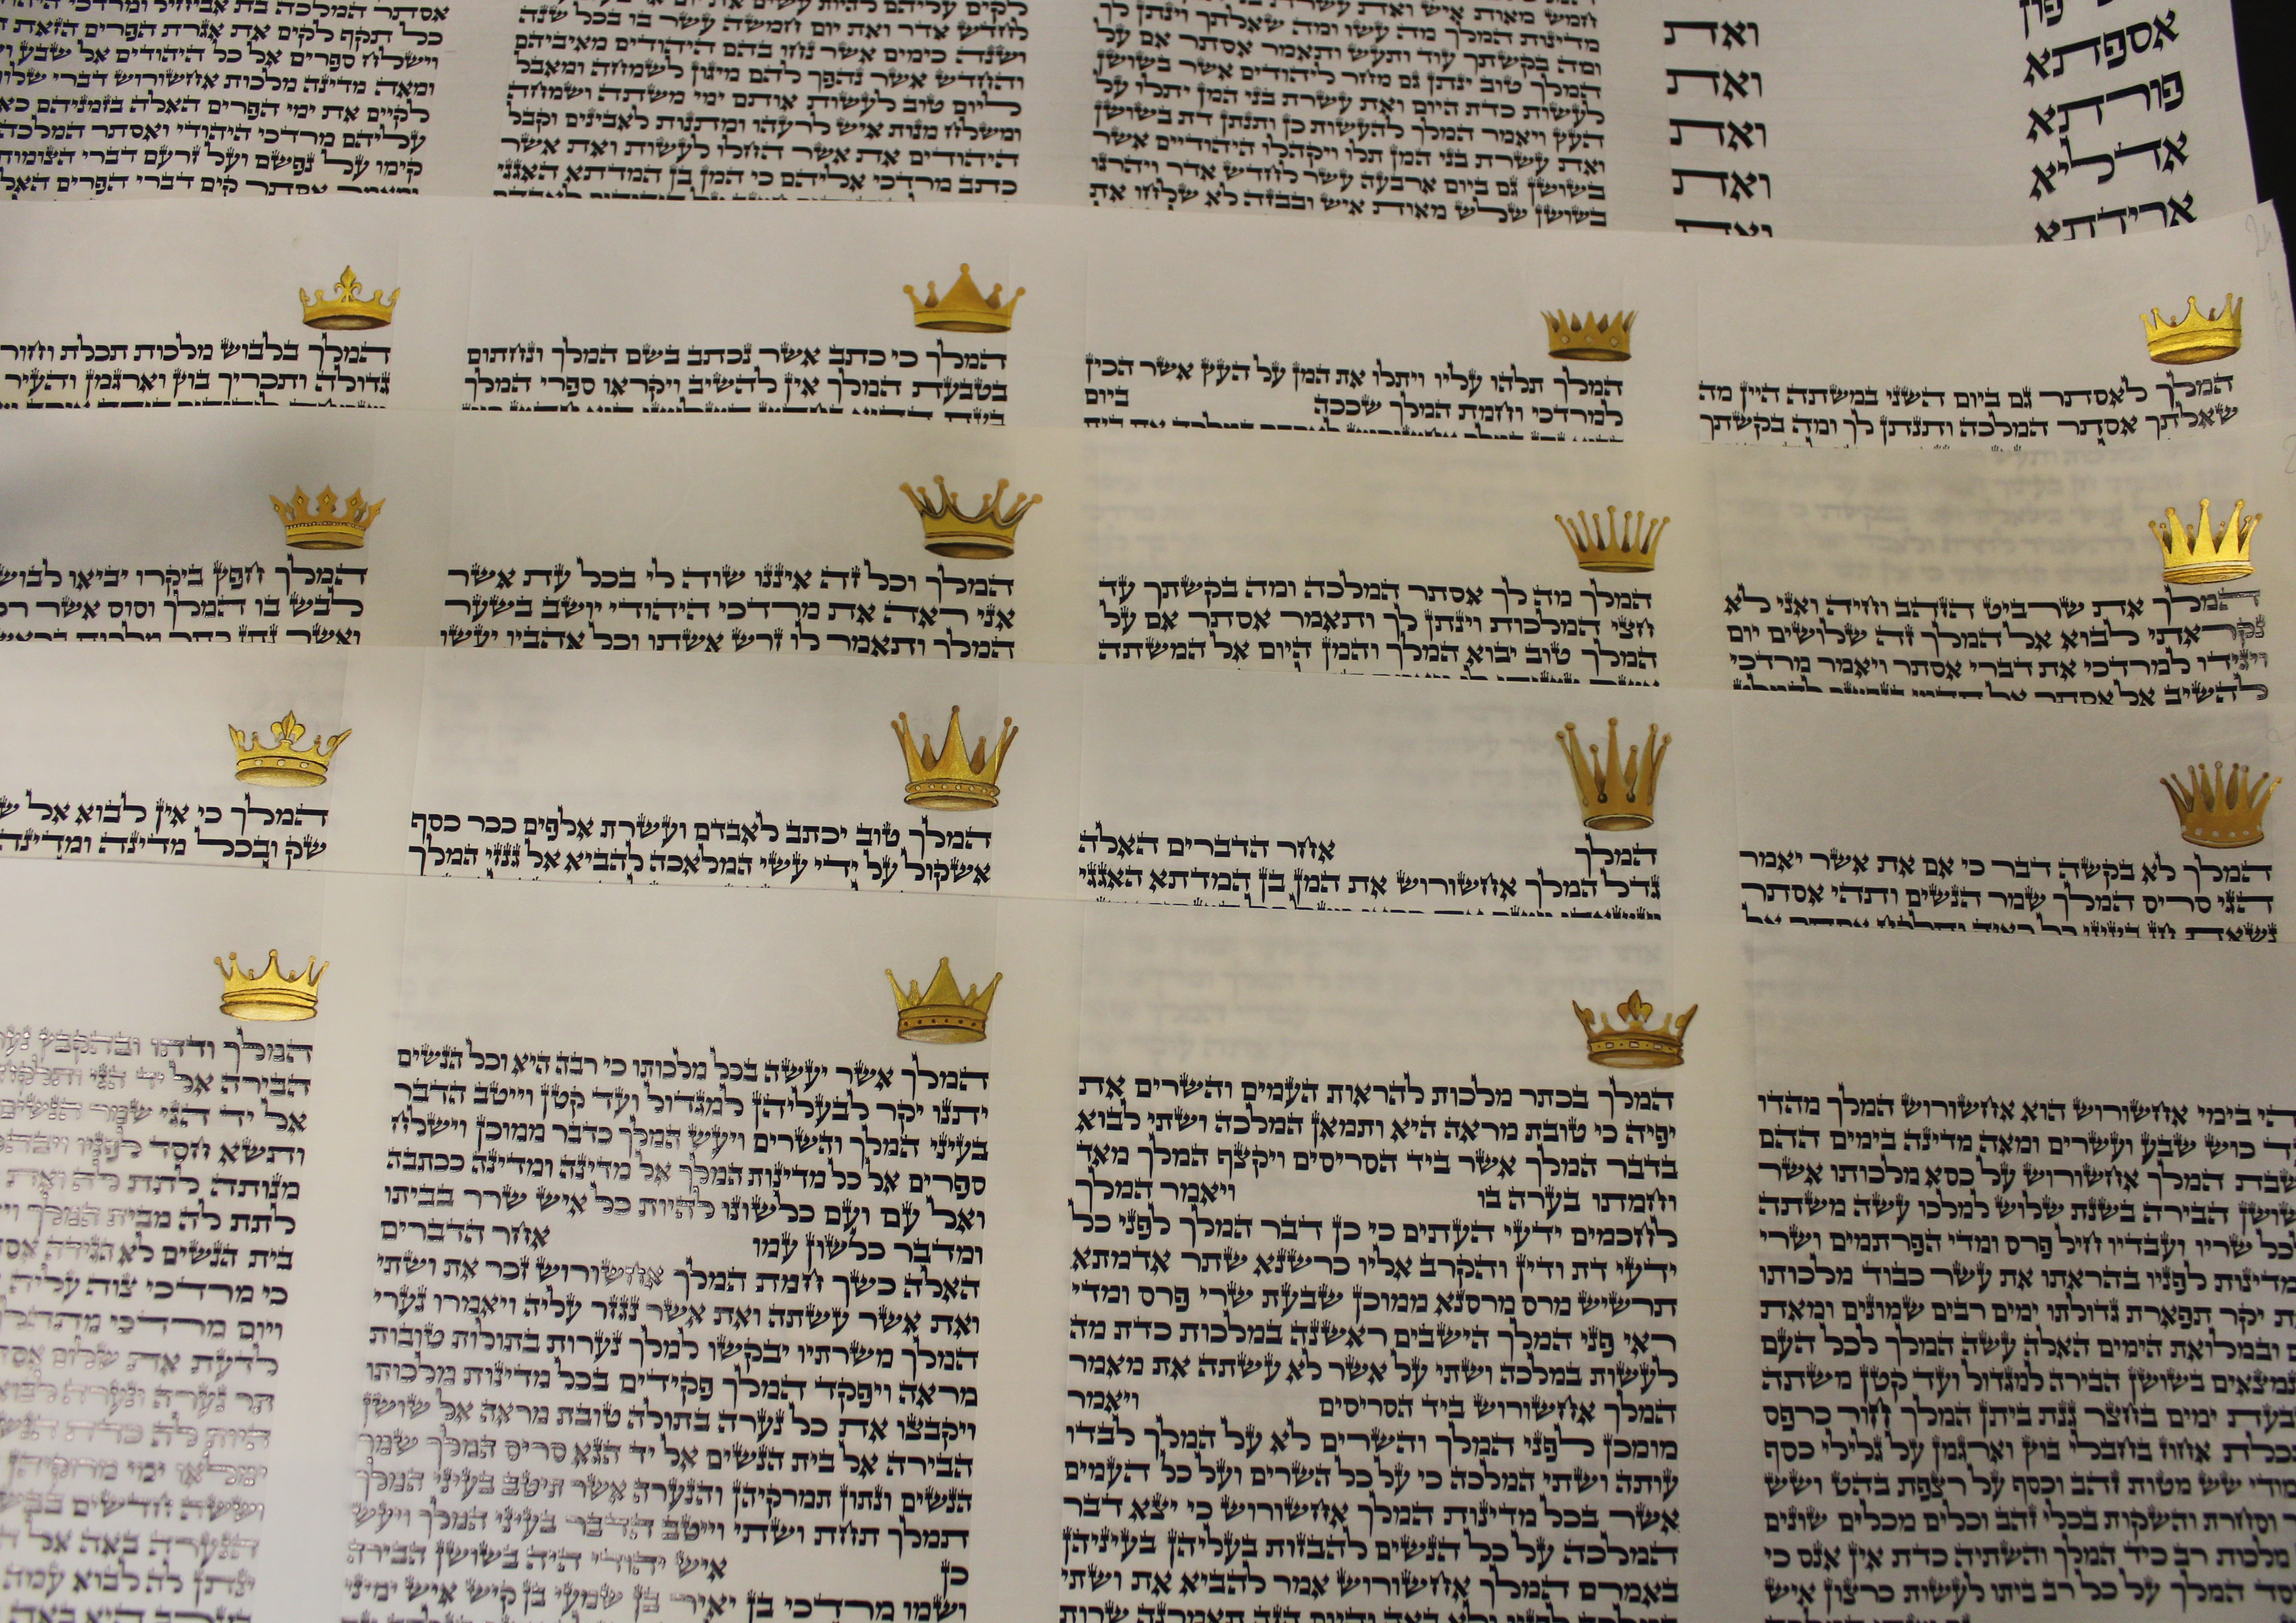 אספתא
פורתא
אדליא
ארידתא
ואת
ואת
ואת
ואת
ואת
מדינות המלך מה עשו ומה שאלתך וינתן לך
ומה בקשתך עוד ותעש ותאמר אסתר אם על
המלך טוב ינתן גם מחר ליהודים אשר בשושן
לעשות כדת היום ואת עשרת בני המן יתלו על
העץ ויאמר המלך להעשות כן ותנתן דת בשושן
ואת עשרת בני המן תלו ויקהלו היהודיים אשר
בשושן גם ביום ארבעה עשר לחדש אדר ויהרגו
בשושן שלש מאות איש ובבזה לא שלחו את
לקים עליהם להיות עשים את יום
לחדש אדר ואת יום חמשה עשר בו בכל שנה
ושנה כימים אשר נחו בהם היהודים מאיביהם
והחדש אשר נהפך להם מיגון לשמחה ומאבל
ליום טוב לעשות אותם ימי משתה ושמחה
ומשלח מנות איש לרעהו ומתנות לאבינים וקבל
היהודים את אשר החלו לעשות ואת אשר
כתב מרדכי אליהם כי המן בן המדתא האגגי
אסתר המלכה בת אביחיל ומרדכי
כל תקף לקים את אגרת הפרים הזאת
וישלח ספרים אל כל היהודים אל שבע
ומאה מדינה מלכות אחשורוש דברי
לקיים את ימי הפרים האלה בזמניהם
עליהם מרדכי היהודי ואסתר המלכה
קימו על נפשם ועל זרעם דברי הצומות
ומאמר אסתר קים דברי הפרים
המלך לאסתר גם ביום השני במשתה היין מה
שאלתך אסתר המלכה ותנתן לך ומה בקשתך
המלך תלהו עליו ויתלו את המן על העץ אשר הכין
למרדכי וחמת המלך שככה ביום
המלך כי כתב אשר נכתב בשם המלך ונחתום
בטבעת המלך אין להשיב ויקראו ספרי המלך
המלך בלבוש מלכות תכלת וחור
גדולה ותכריך בוץ וארגמן והעיר
המלך את שרביט הזהב וחיה ואני לא
נקראתי לבוא אל המלך זה שלושים יום
ויגידו למרדכי את דברי אסתר ויאמר מרדכי
להשיב אל אסתר אל
המלך מה לך אסתר המלכה ומה בקשתך עד
חצי המלכות וינתן לך ותאמר אסתר אם על
המלך טוב יבוא המלך והמן היום אל המשתה
המלך וכל זה איננו שוה לי בכל עת אשר
אני ראה את מרדכי היהודי יושב בשער
המלך ותאמר לו זרש אשתו וכל אהביו יעשו
המלך חפץ ביקרו יביאו לבוש
לבש בו המלך וסוס אשר
ואשר נתן כתר מלכות
המלך לא בקשה דבר כי אם את אשר יאמר
הגי סריס המלך שמר הנשים ותהי אסתר
נשאת חן בעיני כל ראיה ותלקח אסתר אל
המלך אחר הדברים האלה
גדל המלך אחשורוש את המן בן המדתא האגגי
המלך טוב יכתב לאבדם ועשרת אלפים ככר כסף
אשקול על ידי עשי המלאכה להביא אל גנזי המלך
המלך כי אין לבוא אל
שק ובכל מדינה ומדינה
בימי אחשורוש הוא אחשורוש המלך מהדו
כוש שבע ועשרים ומאה מדינה בימים ההם
המלך אחשורוש על כסא מלכותו אשר
הבירה בשנת שלוש למלכו עשה משתה
שריו ועבדיו חיל פרס ומדי הפרתמים ושרי
לפניו בהראתו את עשר כבוד מלכותו
יקר תפארת גדולתו ימים רבים שמונים ומאת
ובמלואת הימים האלה עשה המלך לכל העם
בשושן הבירה למגדול ועד קטן משתה
ימים בחצר גנת ביתן המלך חור כרפס
אחוז בחבלי בוץ וארגמן על גלילי כסף
שש מטות זהב וכסף על רצפת בהט ושש
וסחרת והשקות בכלי זהב וכלים מכלים שונים
מלכות רב כיד המלך והשתיה כדת אין אנס כי
המלך על כל רב ביתו לעשות כרצון איש
המלך בכתר מלכות להראות העמים והשרים את
יפיה כי טובת מראה היא ותמאן המלכה ושתי לבוא
בדבר המלך אשר ביד הסריסים ויקצף המלך מאד
וחמתו בערה בו ויאמר המלך
לחכמים ידעי העתים כי כן דבר המלך לפני כל
ידעי דת ודין והקרב אליו כרשנא שתר אדמתא
תרשיש מרס מרסנא ממוכן שבעת שרי פרס ומדי
ראי פני המלך הישבים ראשנה במלכות כדת מה
לעשות במלכה ושתי על אשר לא עשתה את מאמר
המלך אחשורוש ביד הסריסים ויאמר
מומכן לפני המלך והשרים לא על המלך לבדו
עותה ושתי המלכה כי על כל השרים ועל כל העמים
אשר בכל מדינות המלך אחשורוש כי יצא דבר
המלכה על כל הנשים להבזות בעליהן בעיניהן
באמרם המלך אחשורוש אמר להביא את ושתי
המלך אשר יעשה בכל מלכותו כי רבה היא וכל הנשים
יתנו יקר לבעליהן למגדול ועד קטן וייטב הדבר
בעיני המלך והשרים ויעש המלך כדבר ממוכן וישלח
ספרים אל כל מדינות המלך אל מדינה ומדינה ככתבה
ואל עם ועם כלשונו להיות כל איש שרר בביתו
ומדבר כלשון עמו אחר הדברים
האלה כשך חמת המלך אחשורוש זכר את ושתי
ואת אשר עשתה ואת אשר נגזר עליה ויאמרו נערי
המלך משרתיו יבקשו למלך נערות בתולות טובות
מראה ויפקד המלך פקידים בכל מדינות מלכותו
ויקבצו את כל נערה בתולה טובת מראה אל שושן
הבירה אל בית הנשים אל יד הגא סריס המלך שמר
הנשים ונתון תמרקיהן והנערה אשר תיטב בעיני המלך
תמלך תחת ושתי וייטב הדבר בעיני המלך ויעש
כן איש יהודי היה בשושן הבירה
ושמו מרדכי בן יאיר בן שמעי בן קיש איש ימיני
המלך ודתו ובהקבץ
הבירה אל יד הגי
אל יד הגי שמר הנשים
ותשא חסד לפניו
מנותה לתת לה ואת
לתת לה מבית המלך
בית הנשים לא הגידה
כי מרדכי צוה עליה
ויום מרדכי מתהלך
לדעת את שלום
תר נערה ונערה לבוא
היות לה כדת
ימלאו ימי מרוקיהן
וששה חדשים
הנערה באה אל
ינתן לה לבוא עמה